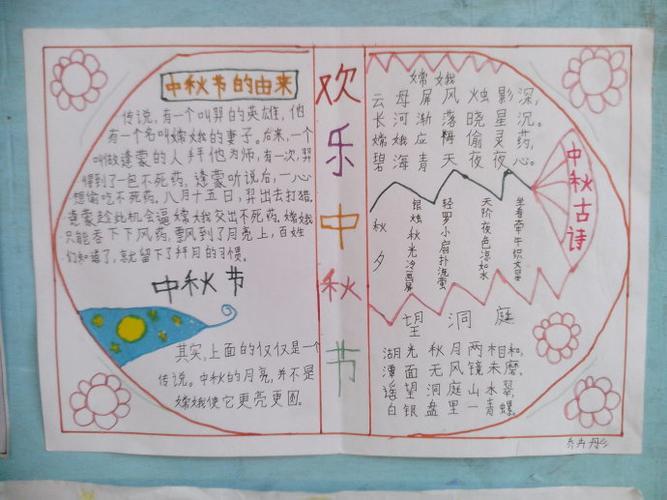 中秋节的由来
传说，有一个叫羿的英雄，他
有一个名叫嫦娥的妻子。后来，一个
叫做逢蒙的人拜他为师，有一次，羿
得到了一包不死药，逢蒙听说后，一心
想偷吃不死药，八月十五日，羿出去打猎，
逢蒙趁此机会逼嫦娥交出不死药，嫦娥
只能吞下下风药，飘风到了月亮上，百姓
们知道了，就留下了拜月的习惯。
中秋节
其实，上面的仅仅是一个
传说。中秋的月亮，并不是
嫦娥使它更亮更圆。
欢乐中秋节
嫦娥
云母屏风烛影深，
长河渐落晓星沉。
嫦娥应悔偷灵药，
碧海青天夜夜心。
中秋古诗
秋夕
银烛秋光冷画屏
轻罗小扇扑流萤
天阶夜色凉如水
坐看牵牛织女星
望洞庭
湖光秋月两相和，
潭面无风镜未磨。
遥望洞庭山水翠，
白银盘里一青螺。